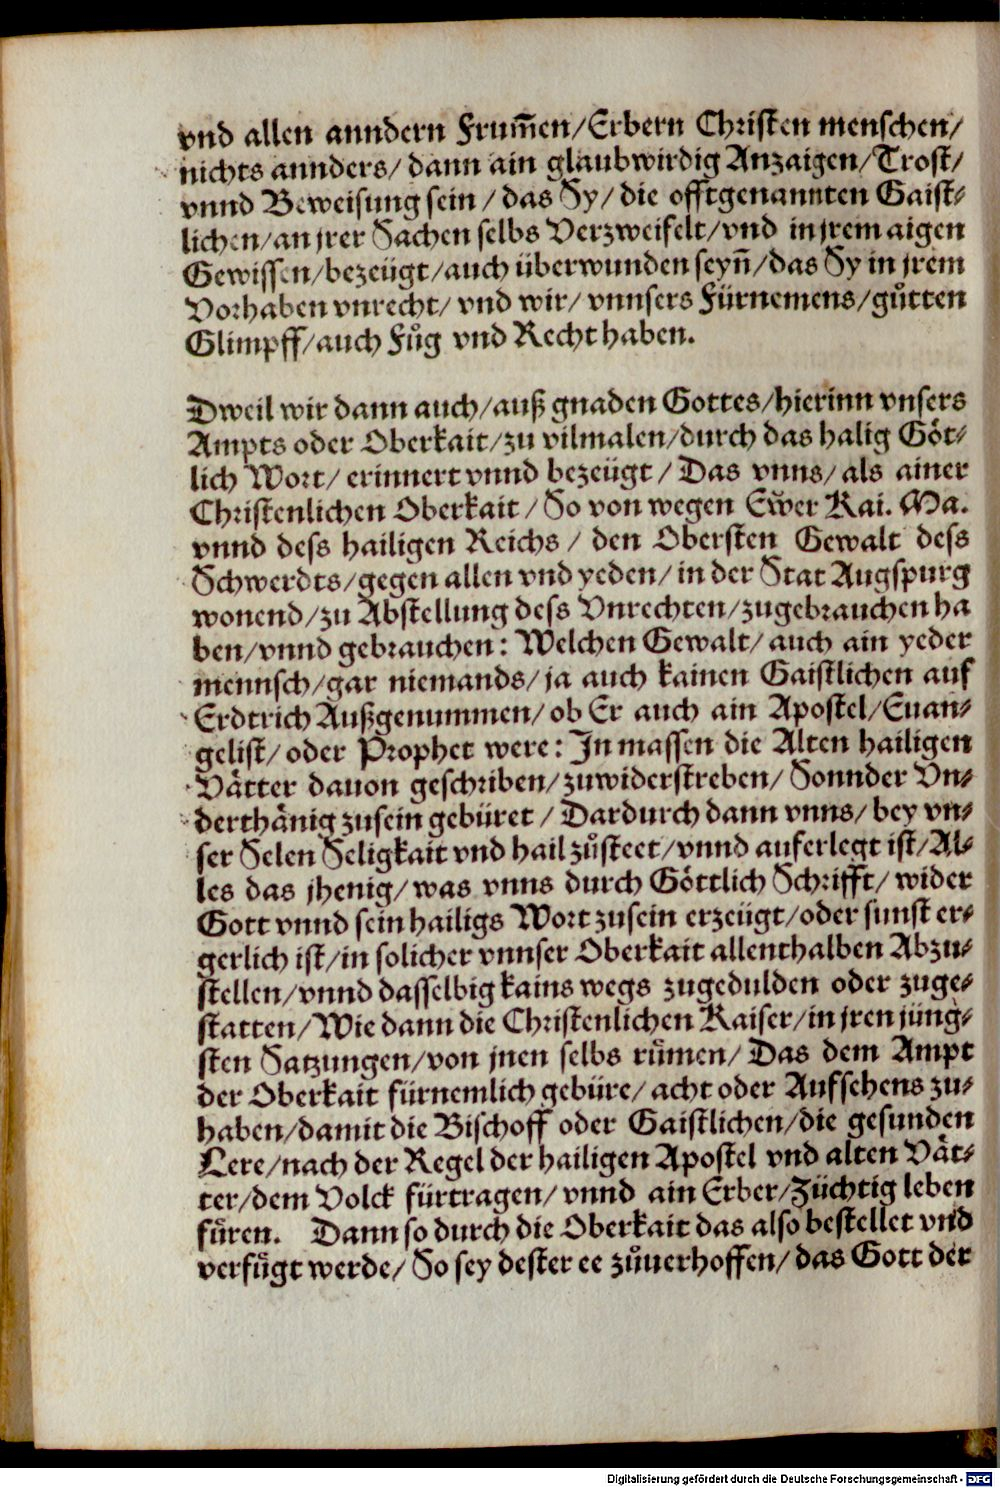 vnd allen anndern Frum̃en/Erbern Christen menschen/
nichts annders/ dann ain glaubwirdig Anzaigen/Trost/
vnnd Beweisung sein / das Sy/ die offtgenannten Gaist-
lichen/an jrer Sachen selbs Verzweifelt/vnd in jrem aigen
Gewissen/bezeügt/auch überwunden seyn̄/das Sy in jrem
Vorhaben vnrecht/ vnd wir/ vnnsers Fürnemens/gůtten
Glimpff/auch Fůg vnd Recht haben.
Dweil wir dann auch/auß gnaden Gottes/hierinn vnsers
Ampts oder Oberkait/zu vilmalen/durch das halig Göt-
lich Wort/ erinnert vnnd bezeügt / Das vnns/ als ainer
Christenlichen Oberkait / So von wegen Ew̆er Kai. Ma.
vnnd dess hailigen Reichs / den Obersten Gewalt dess
Schwerdts/gegen allen vnd yeden/in der Stat Augspurg
wonend/zu Abstellung dess Vnrechten/zugebrauchen ha
ben/vnnd gebrauchen: Welchen Gewalt/ auch ain yeder
mennsch/gar niemands/ja auch kainen Gaistlichen auf
Erdtrich Außgenummen/ob Er auch ain Apostel/Euan-
gelist/ oder Prophet were: In massen die Alten hailigen
Vätter dauon geschriben/zuwiderstreben/ Sonnder Vn-
derthänig zusein gebüret / Dardurch dann vnns/ bey vn-
ser Selen Seligkait vnd hail zůsteet/vnnd auferlegt ist/Al-
les das jhenig/was vnns durch Göttlich Schrifft/ wider
Gott vnnd sein hailigs Wort zusein erzeügt/oder sunst er-
gerlich ist/in solicher vnnser Oberkait allenthalben Abzu-
stellen/vnnd dasselbig kains wegs zugedulden oder zuge-
statten/Wie dann die Christenlichen Kaiser/in jren jüng-
sten Satzungen/von jnen selbs rümen/ Das dem Ampt
der Oberkait fürnemlich gebüre/ acht oder Aufsehens zu-
haben/damit die Bischoff oder Gaistlichen/die gesunden
Lere/nach der Regel der hailigen Apostel vnd alten Vät-
ter/dem Volck fürtragen/ vnnd ain Erber/Züchtig leben
füren. Dann so durch die Oberkait das also bestellet vnd
verfügt werde/ So sey dester ee zůuerhoffen/ das Gott der
Digitalisierung gefördert durch die Deutsche Forschungsgemeinschaft - DFG